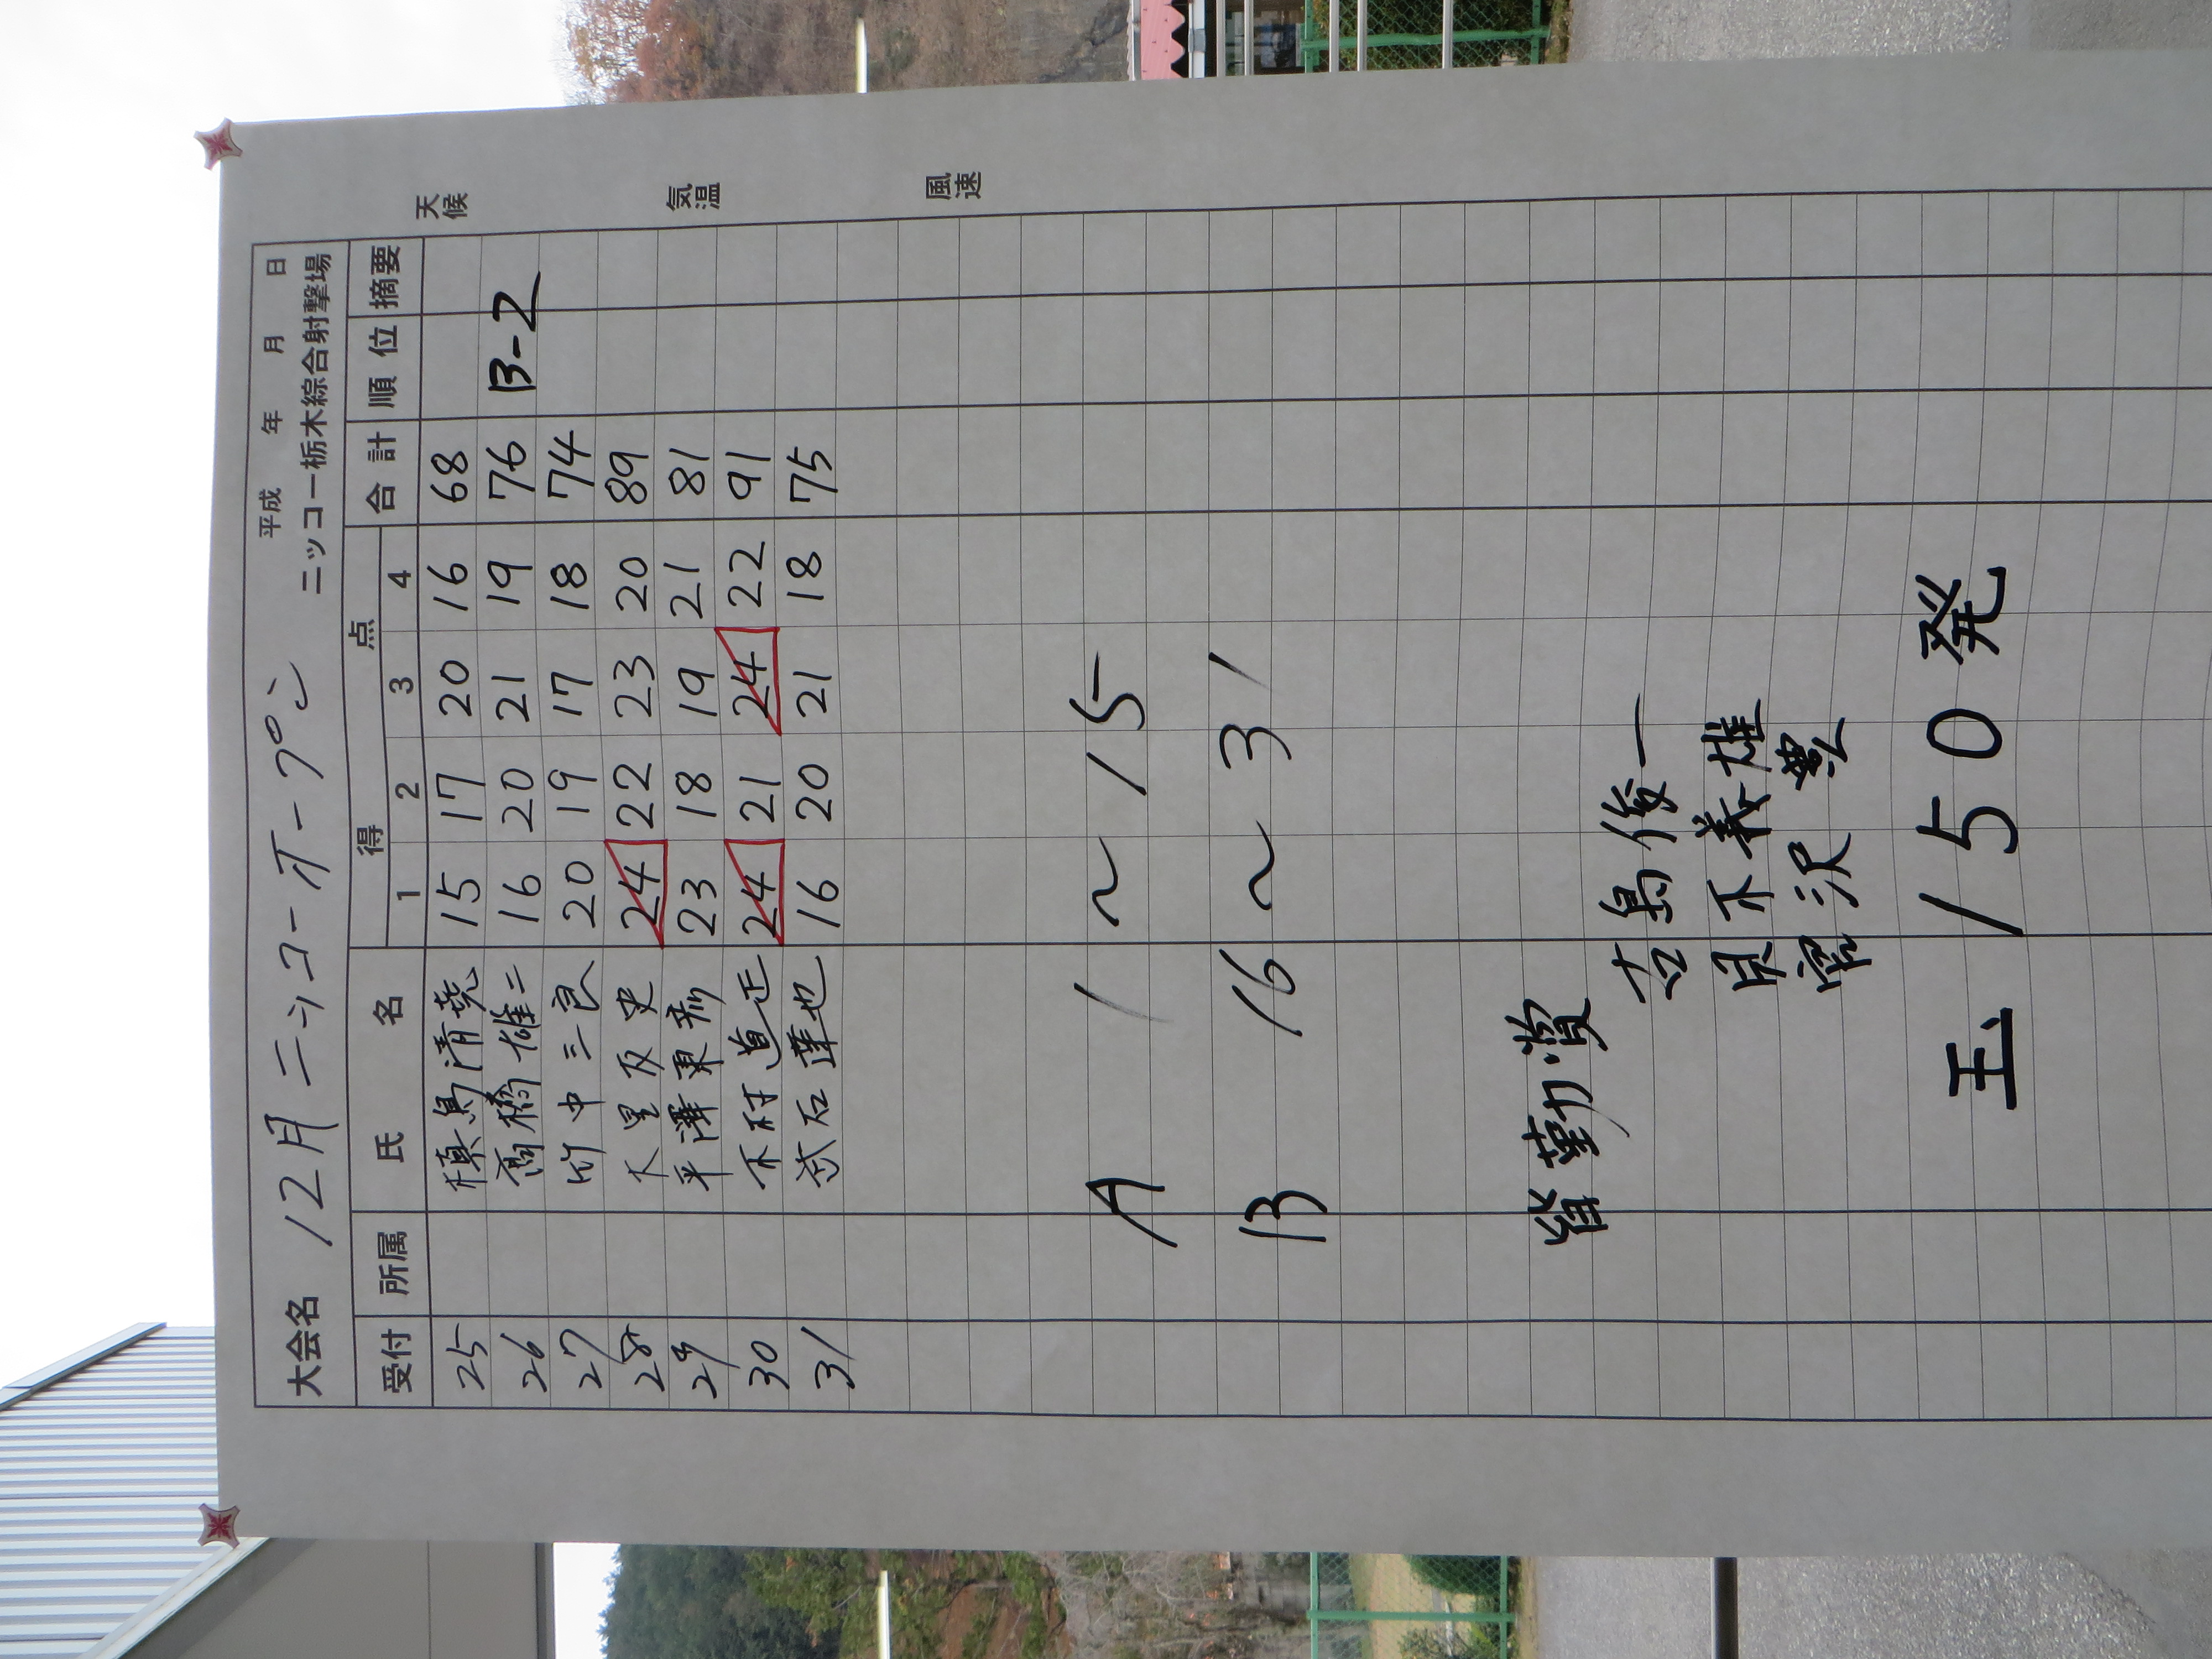 大会名 12月ニッコーオープン 平成 年 月 日
ニッコー栃木綜合射撃場
受付 所属 氏名 得点 1 2 3 4 合計 順位 摘要
天候
気温
風速
25 槙島清堯 15 17 20 16 68
26 高橋雄二 16 20 21 19 76 B-2
27 竹中三良 20 19 17 18 74
28 大里友史 24 22 23 20 89
29 平澤東彦 23 18 19 21 81
30 木村道正 24 21 24 22 91
31 武石達也 16 20 21 18 75
A 1 ～ 15
B 16 ～ 31
皆勤賞
島俊一
木義雄
沢 豊
玉 150発